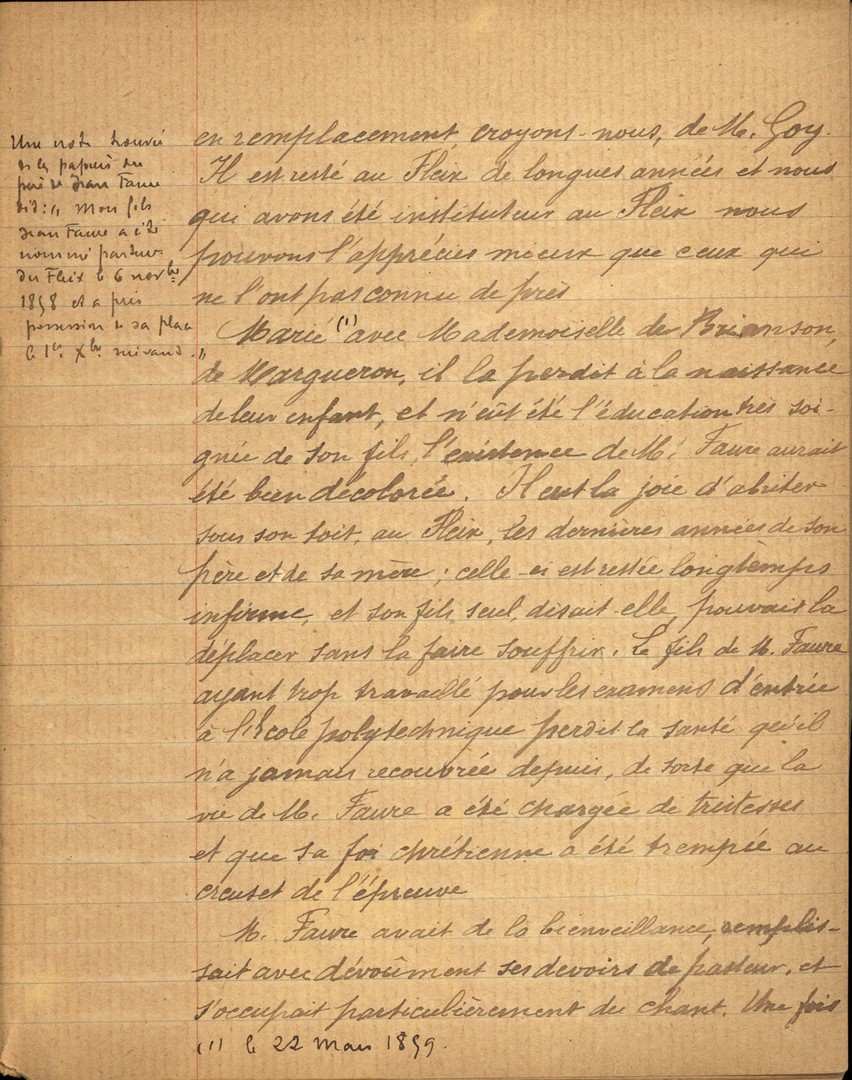 Une note trouvée
ds les papiers du
père de Jean Faure
dit : " Mon fils
Jean Faure a été
nommé pasteur
du Fleix le 6 novbre
1858 et a pris
possession de sa place
le 1er Xbre suivant. "
en remplacement, croyons-nous, de M. Goy.
Il est resté au Fleix de longues années et nous
qui avons été instituteur au Fleix nous
pouvons l'apprécier mieux que ceux qui
ne l'ont pas connu de près
Marié (1) avec Mademoiselle de Brianson,
de Margueron, il la perdit à la naissance
de leur enfant, et n'eût été l'éducation très soi-
gnée de son fils, l'existence de M. Faure aurait
été bien décolorée. Il eut la joie d'abriter
sous son toit, au Fleix, les dernières années de son
père et de sa mère ; celle-ci est restée longtemps
infirme, et son fils seul, disait-elle, pouvait la
déplacer sans la faire souffrir. Le fils de M. Faure
ayant trop travaillé pour les examens d'entrée
à l'École polytechnique perdit la santé qu'il
n'a jamais recouvrée depuis, de sorte que la
vie de M. Faure a été chargée de tristesses
et que sa foi chrétienne a été trempée au
creuset de l'épreuve
M. Faure avait de la bienveillance, remplis-
sait avec dévoûment ses devoirs de pasteur, et
s'occupait particulièrement du chant. Une fois
(1) le 22 Mars 1859.